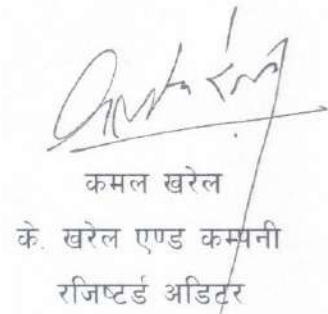 कमल खरेल
के. खरेल एण्ड कम्पनी
रजिष्टर्ड अडिटर